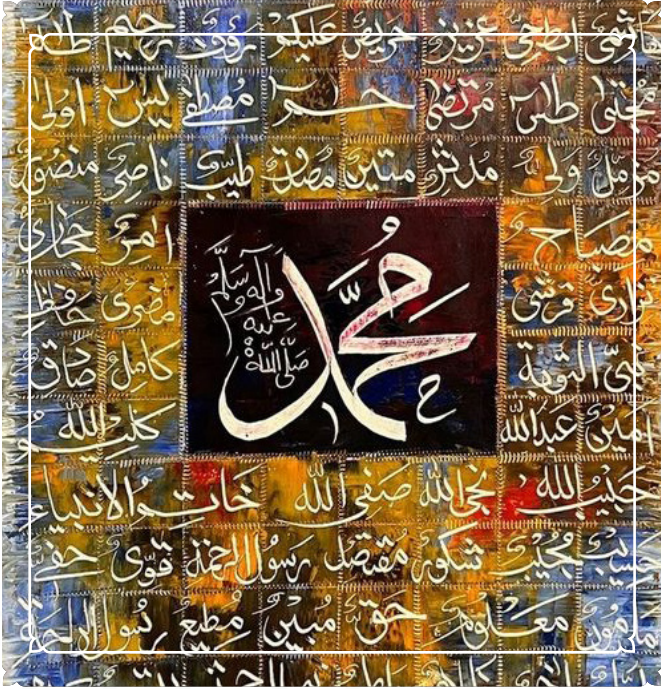 هاشمي ابطحي عزيز حريص عليكم رؤف رحيم طه
مجتبى طس مرتضى حم مصطفى يس اولى
مزمل ولي مدثر متين مصدق طيب ناصر منصور
مصباح امر حجازي
نزاري قرشي مضري حافظ
نبي التوبة كامل صادق
امين عبدالله كليم الله
محمد
صلى الله
عليه
وآله وسلم
حبيب الله نجي الله صفي الله خاتم الانبياء
حسيب مجيب شكور مقتصد رسول الرحمة قوي حفي
مامون معلوم حق مبين مطيع رسول الراحة